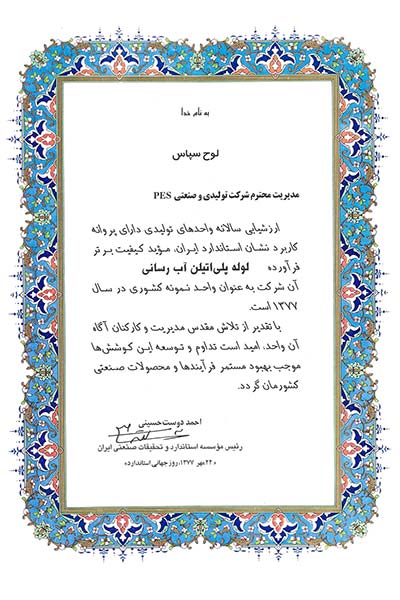 به نام خدا
لوح سپاس
مدیریت محترم شرکت تولیدی و صنعتی PES
ارزشیابی سالانه واحدهای تولیدی دارای پروانه
کاربرد نشان استاندارد ایران، مؤید کیفیت برتر
فرآورده لوله پلی‌اتیلن آب رسانی
آن شرکت به عنوان واحد نمونه کشوری در سال
۱۳۷۷ است.
با تقدیر از تلاش مقدس مدیریت و کارکنان آگاه
آن واحد، امید است تداوم و توسعه این کوشش‌ها
موجب بهبود مستمر فرآیندها و محصولات صنعتی
کشورمان گردد.
احمد دوست حسینی
رئیس مؤسسه استاندارد و تحقیقات صنعتی ایران
«۲۲ مهر ۱۳۷۷، روز جهانی استاندارد»